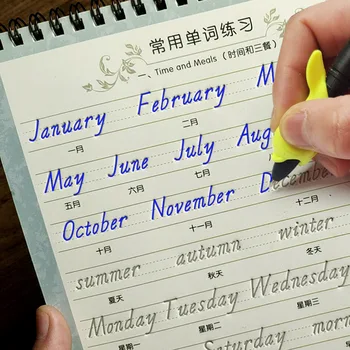 常用单词练习
一、Time and Meals（时间和三餐）
January February M
一月 二月
May June July Aug
五月 六月 七月
October November December
十月 十一月 十二月
summer autumn winter
夏天 秋天 冬天
Monday Tuesday Wednesday
星期一 星期二 星期三
Saturday